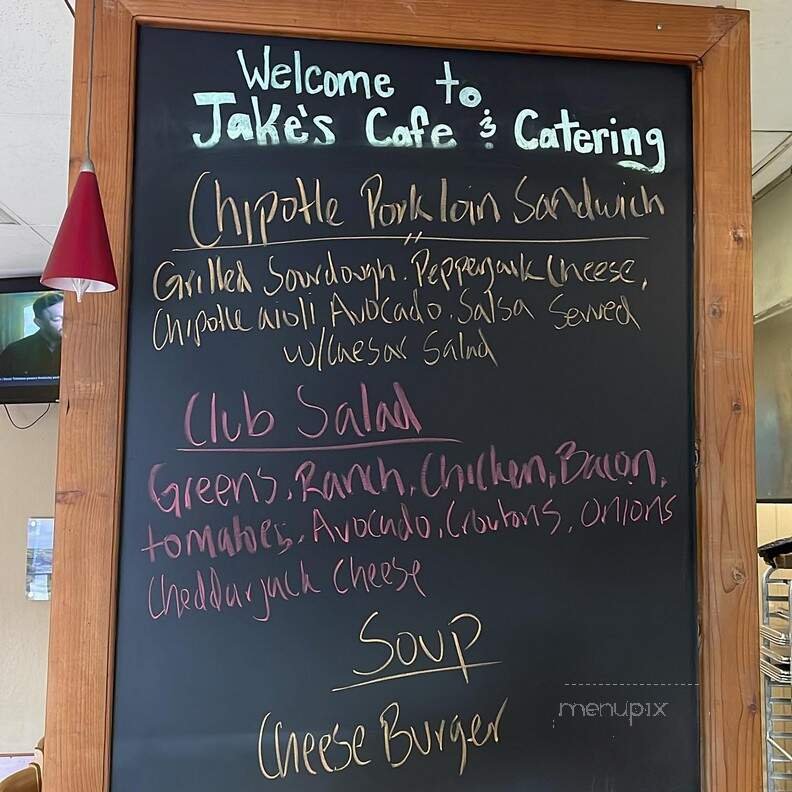 Welcome to
Jake's Cafe & Catering
Chipotle Pork loin Sandwich
Grilled Sourdough. Pepperjack Cheese,
Chipotle aioli Avocado. Salsa Served
w/Caesar Salad
Club Salad
Greens, Ranch, Chicken, Bacon,
tomatoes, Avocado, Croutons, Onions
Cheddarjack Cheese
Soup
Cheese Burger
menupix